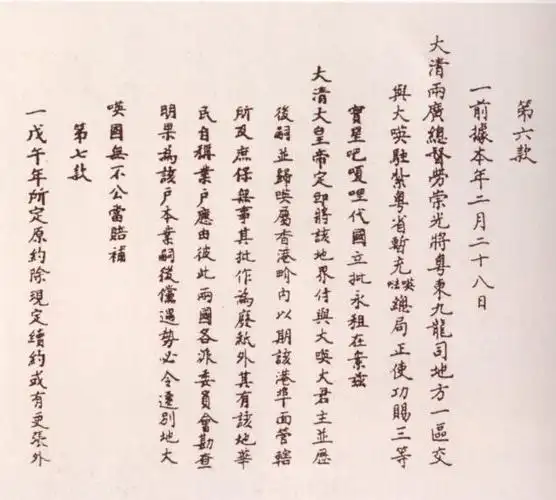 第六款
一前據本年二月二十八日
大清兩廣總督勞崇光將粵東九龍司地方一區交
與大㖸駐紥粵省暫充㖸𠵽總局正使功賜三等
寶星吧嗄哩代國立批永租在案茲
大清大皇帝定即將該地界付與大㖸大君主並歷
後嗣並歸㖸屬香港界內以期該港埠面管轄
所及庶保無事其批作為廢紙外其有該地華
民自稱業戶應由彼此兩國各派委員會勘查
明果為該戶本業嗣後儻遇勢必令遷別地大
㖸國無不公當賠補
第七款
一戊午年所定原約除現定續約或有更張外